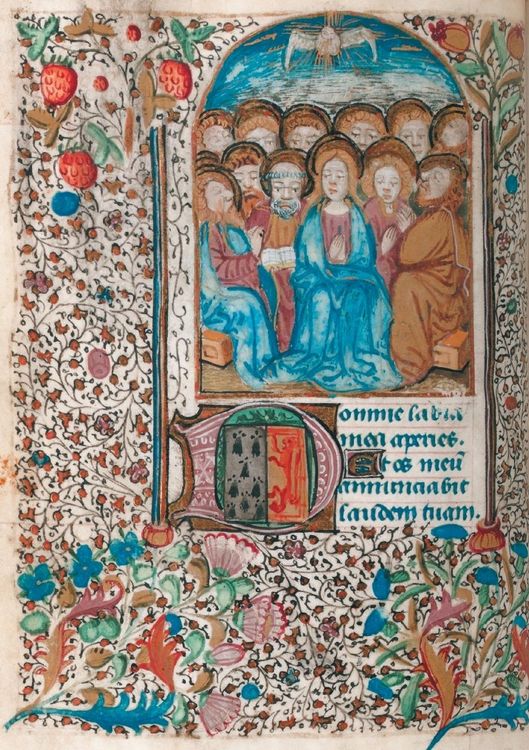 Domine labia
mea aperies.
Et os meū
annunciabit
laudem tuam.